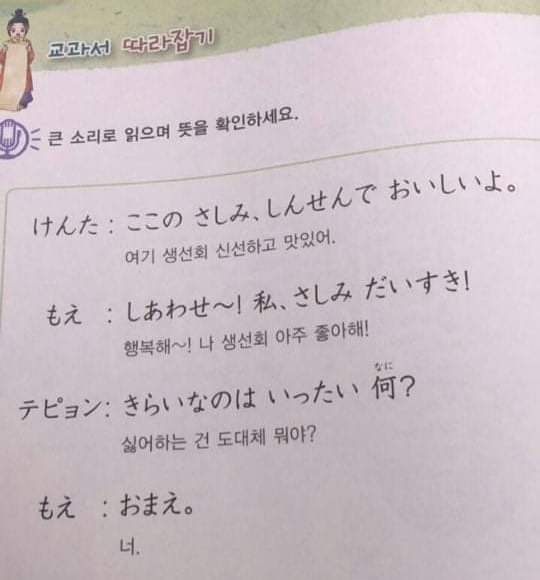 교과서 따라잡기
큰 소리로 읽으며 뜻을 확인하세요.
けんた : ここの さしみ、しんせんで おいしいよ。
여기 생선회 신선하고 맛있어.
もえ : しあわせ~! 私、さしみ だいすき!
행복해~! 나 생선회 아주 좋아해!
なに
テピョン: きらいなのは いったい 何?
싫어하는 건 도대체 뭐야?
もえ : おまえ。
너.